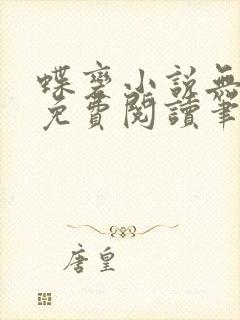 蝶变小說無
免費閱讀筆
唐皇